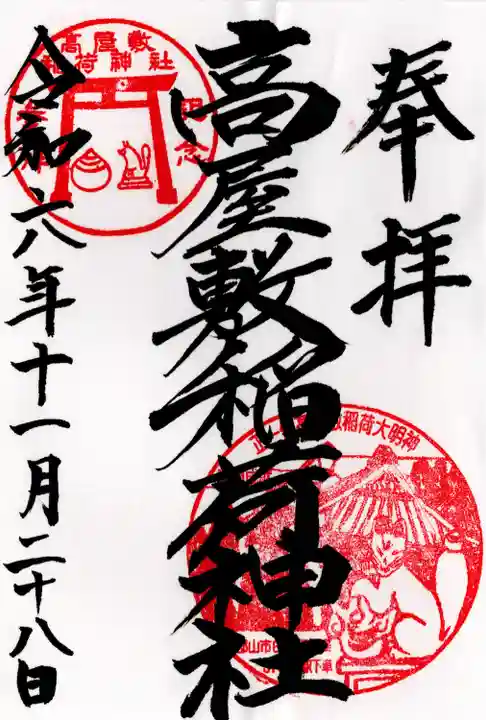 奉拝
高屋敷稲荷神社
令和六年十一月二十八日
高屋敷
稲荷神社
稲荷大明神
山市
下車